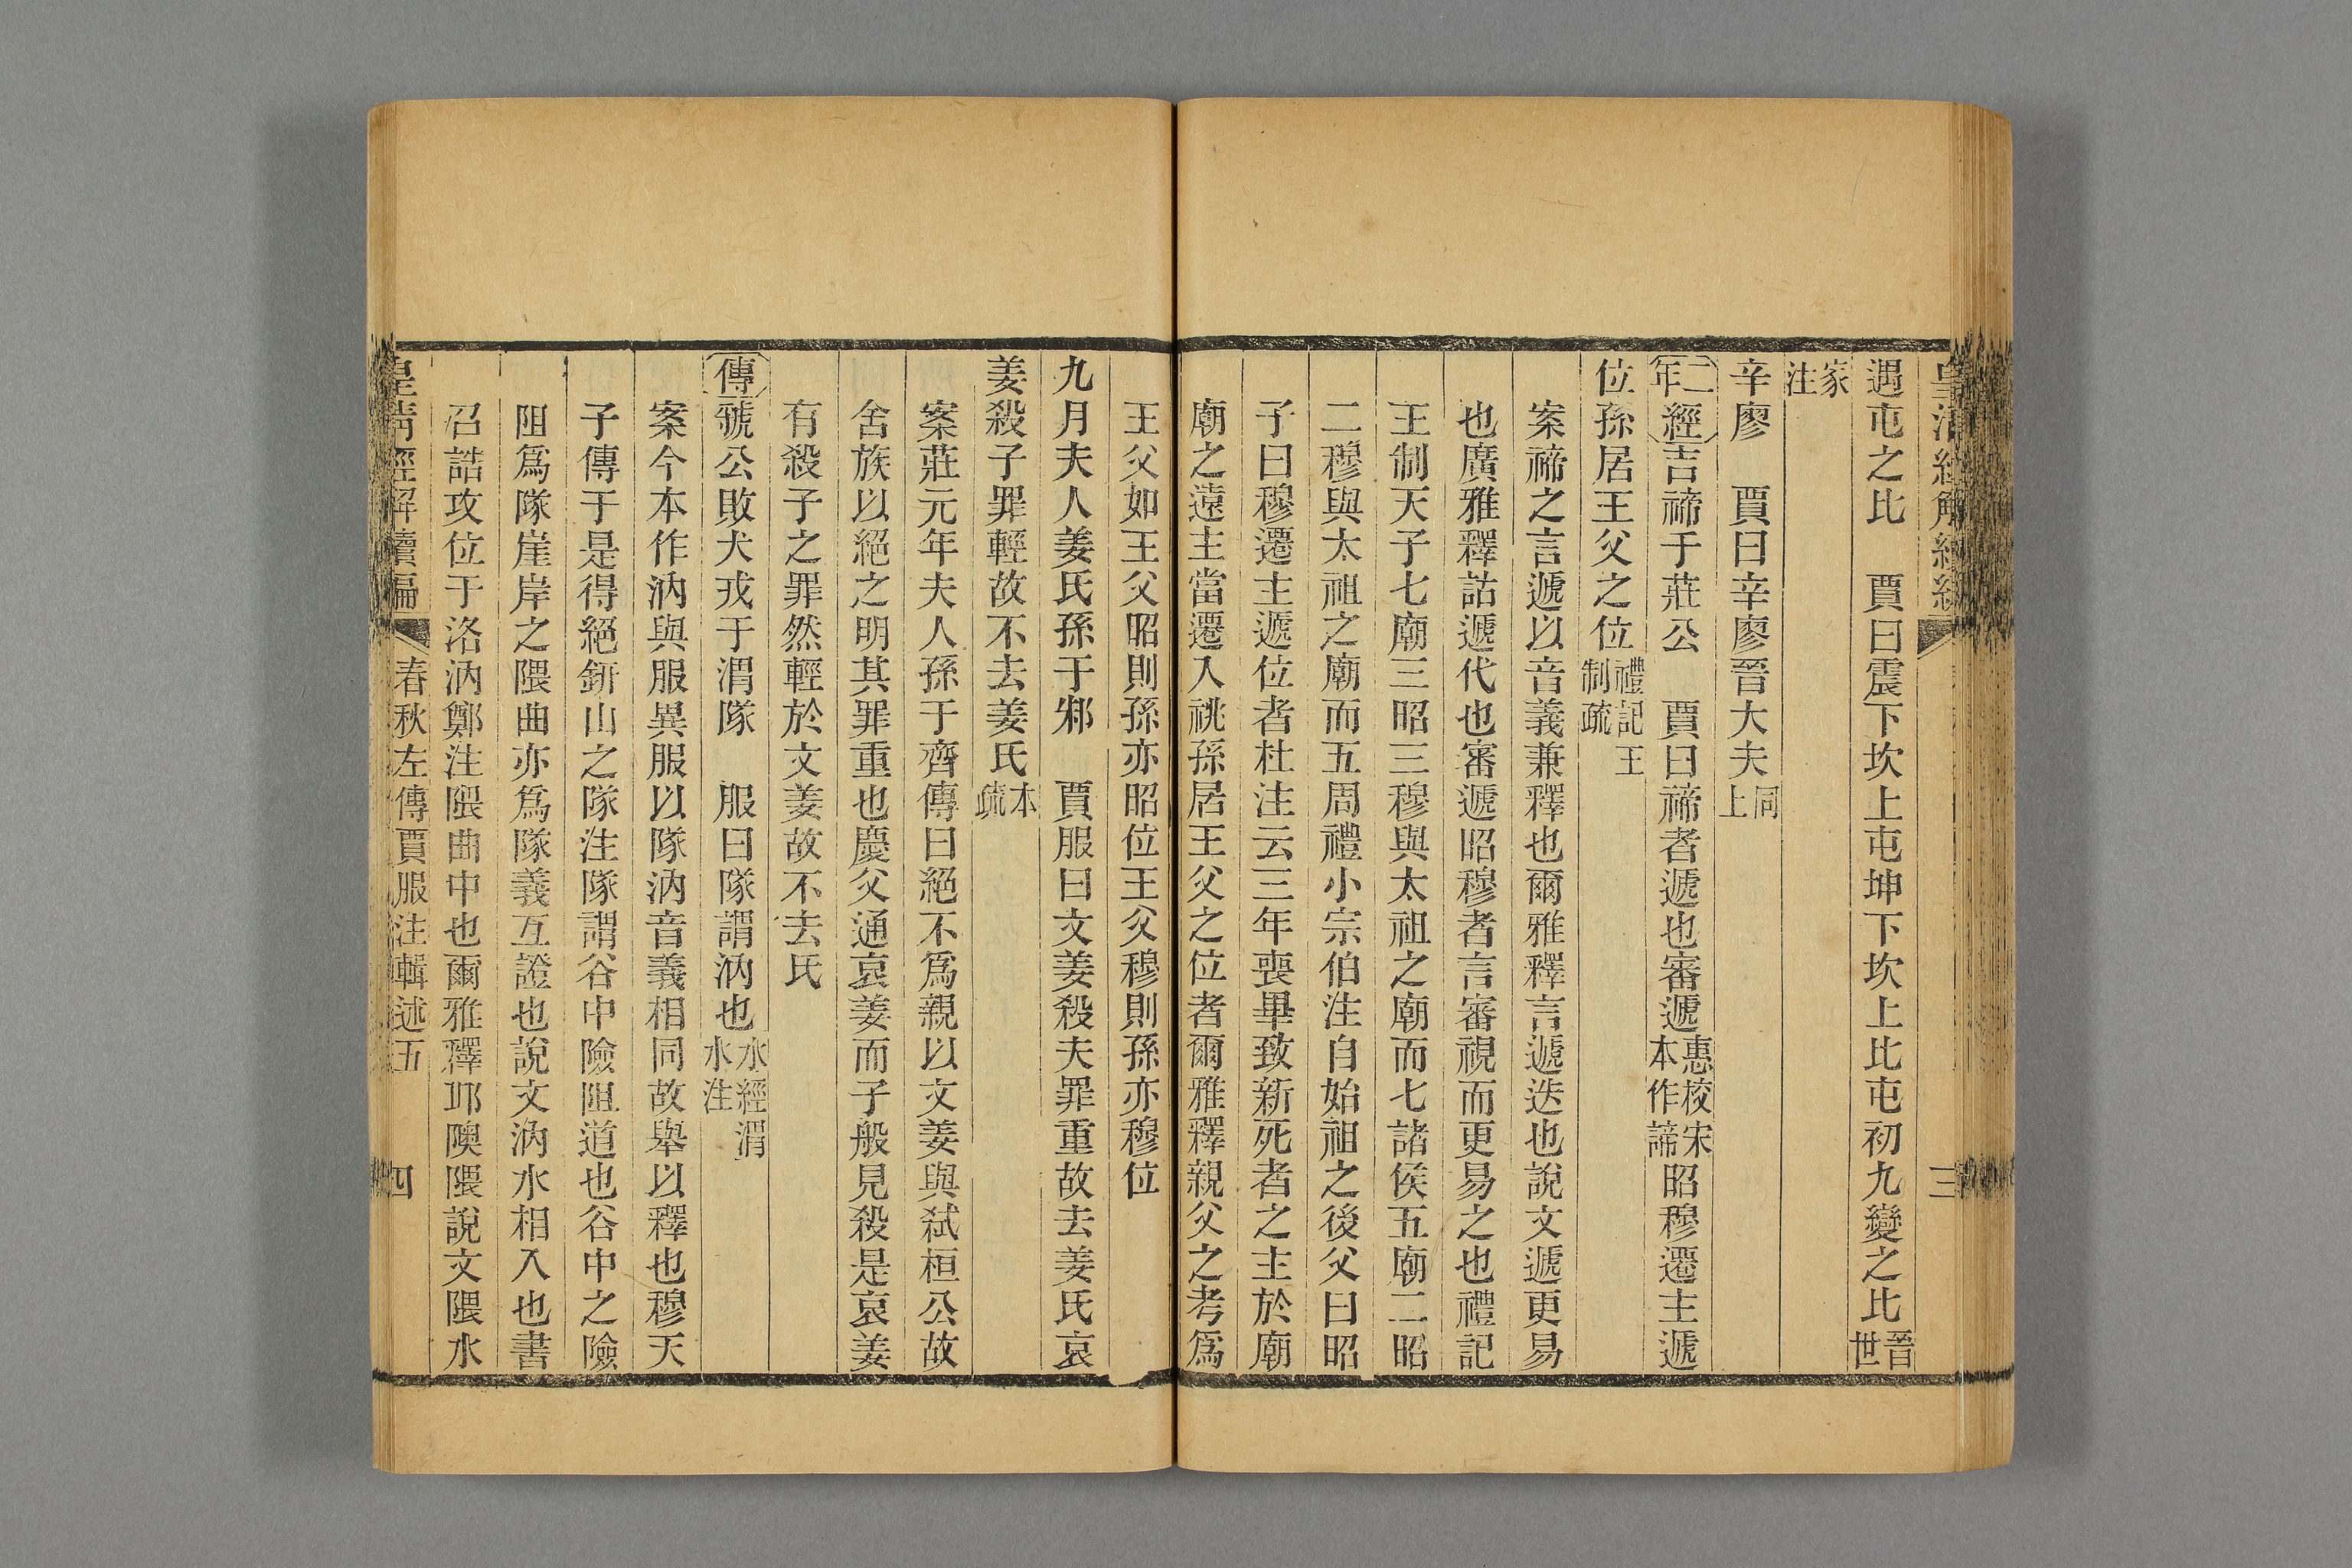 皇清經解續編
三
遇屯之比　賈曰震下坎上屯坤下坎上比屯初九變之比晉世
家注
辛廖　賈曰辛廖晉大夫同上
二年經吉禘于莊公　賈曰禘者遞也審遞惠校宋本作諦昭穆遷主遞
位孫居王父之位禮記王制疏
案禘之言遞以音義兼釋也爾雅釋言遞迭也說文遞更易
也廣雅釋詁遞代也審遞昭穆者言審視而更易之也禮記
王制天子七廟三昭三穆與太祖之廟而七諸侯五廟二昭
二穆與太祖之廟而五周禮小宗伯注自始祖之後父曰昭
子曰穆遷主遞位者杜注云三年喪畢致新死者之主於廟
廟之遠主當遷入祧孫居王父之位者爾雅釋親父之考為
王父如王父昭則孫亦昭位王父穆則孫亦穆位
九月夫人姜氏孫于邾　賈服曰文姜殺夫罪重故去姜氏哀
姜殺子罪輕故不去姜氏本疏
案莊元年夫人孫于齊傳曰絕不為親以文姜與弒桓公故
舍族以絕之明其罪重也慶父通哀姜而子般見殺是哀姜
有殺子之罪然輕於文姜故不去氏
傳虢公敗犬戎于渭隊　服曰隊謂汭也水經渭水注
案今本作汭與服異服以隊汭音義相同故舉以釋也穆天
子傳于是得絕鈃山之隊注隊謂谷中險阻道也谷中之險
阻為隊崖岸之隈曲亦為隊義互證也說文汭水相入也書
召誥攻位于洛汭鄭注隈曲中也爾雅釋邱隩隈說文隈水
皇清經解續編　春秋左傳賈服注輯述五　四